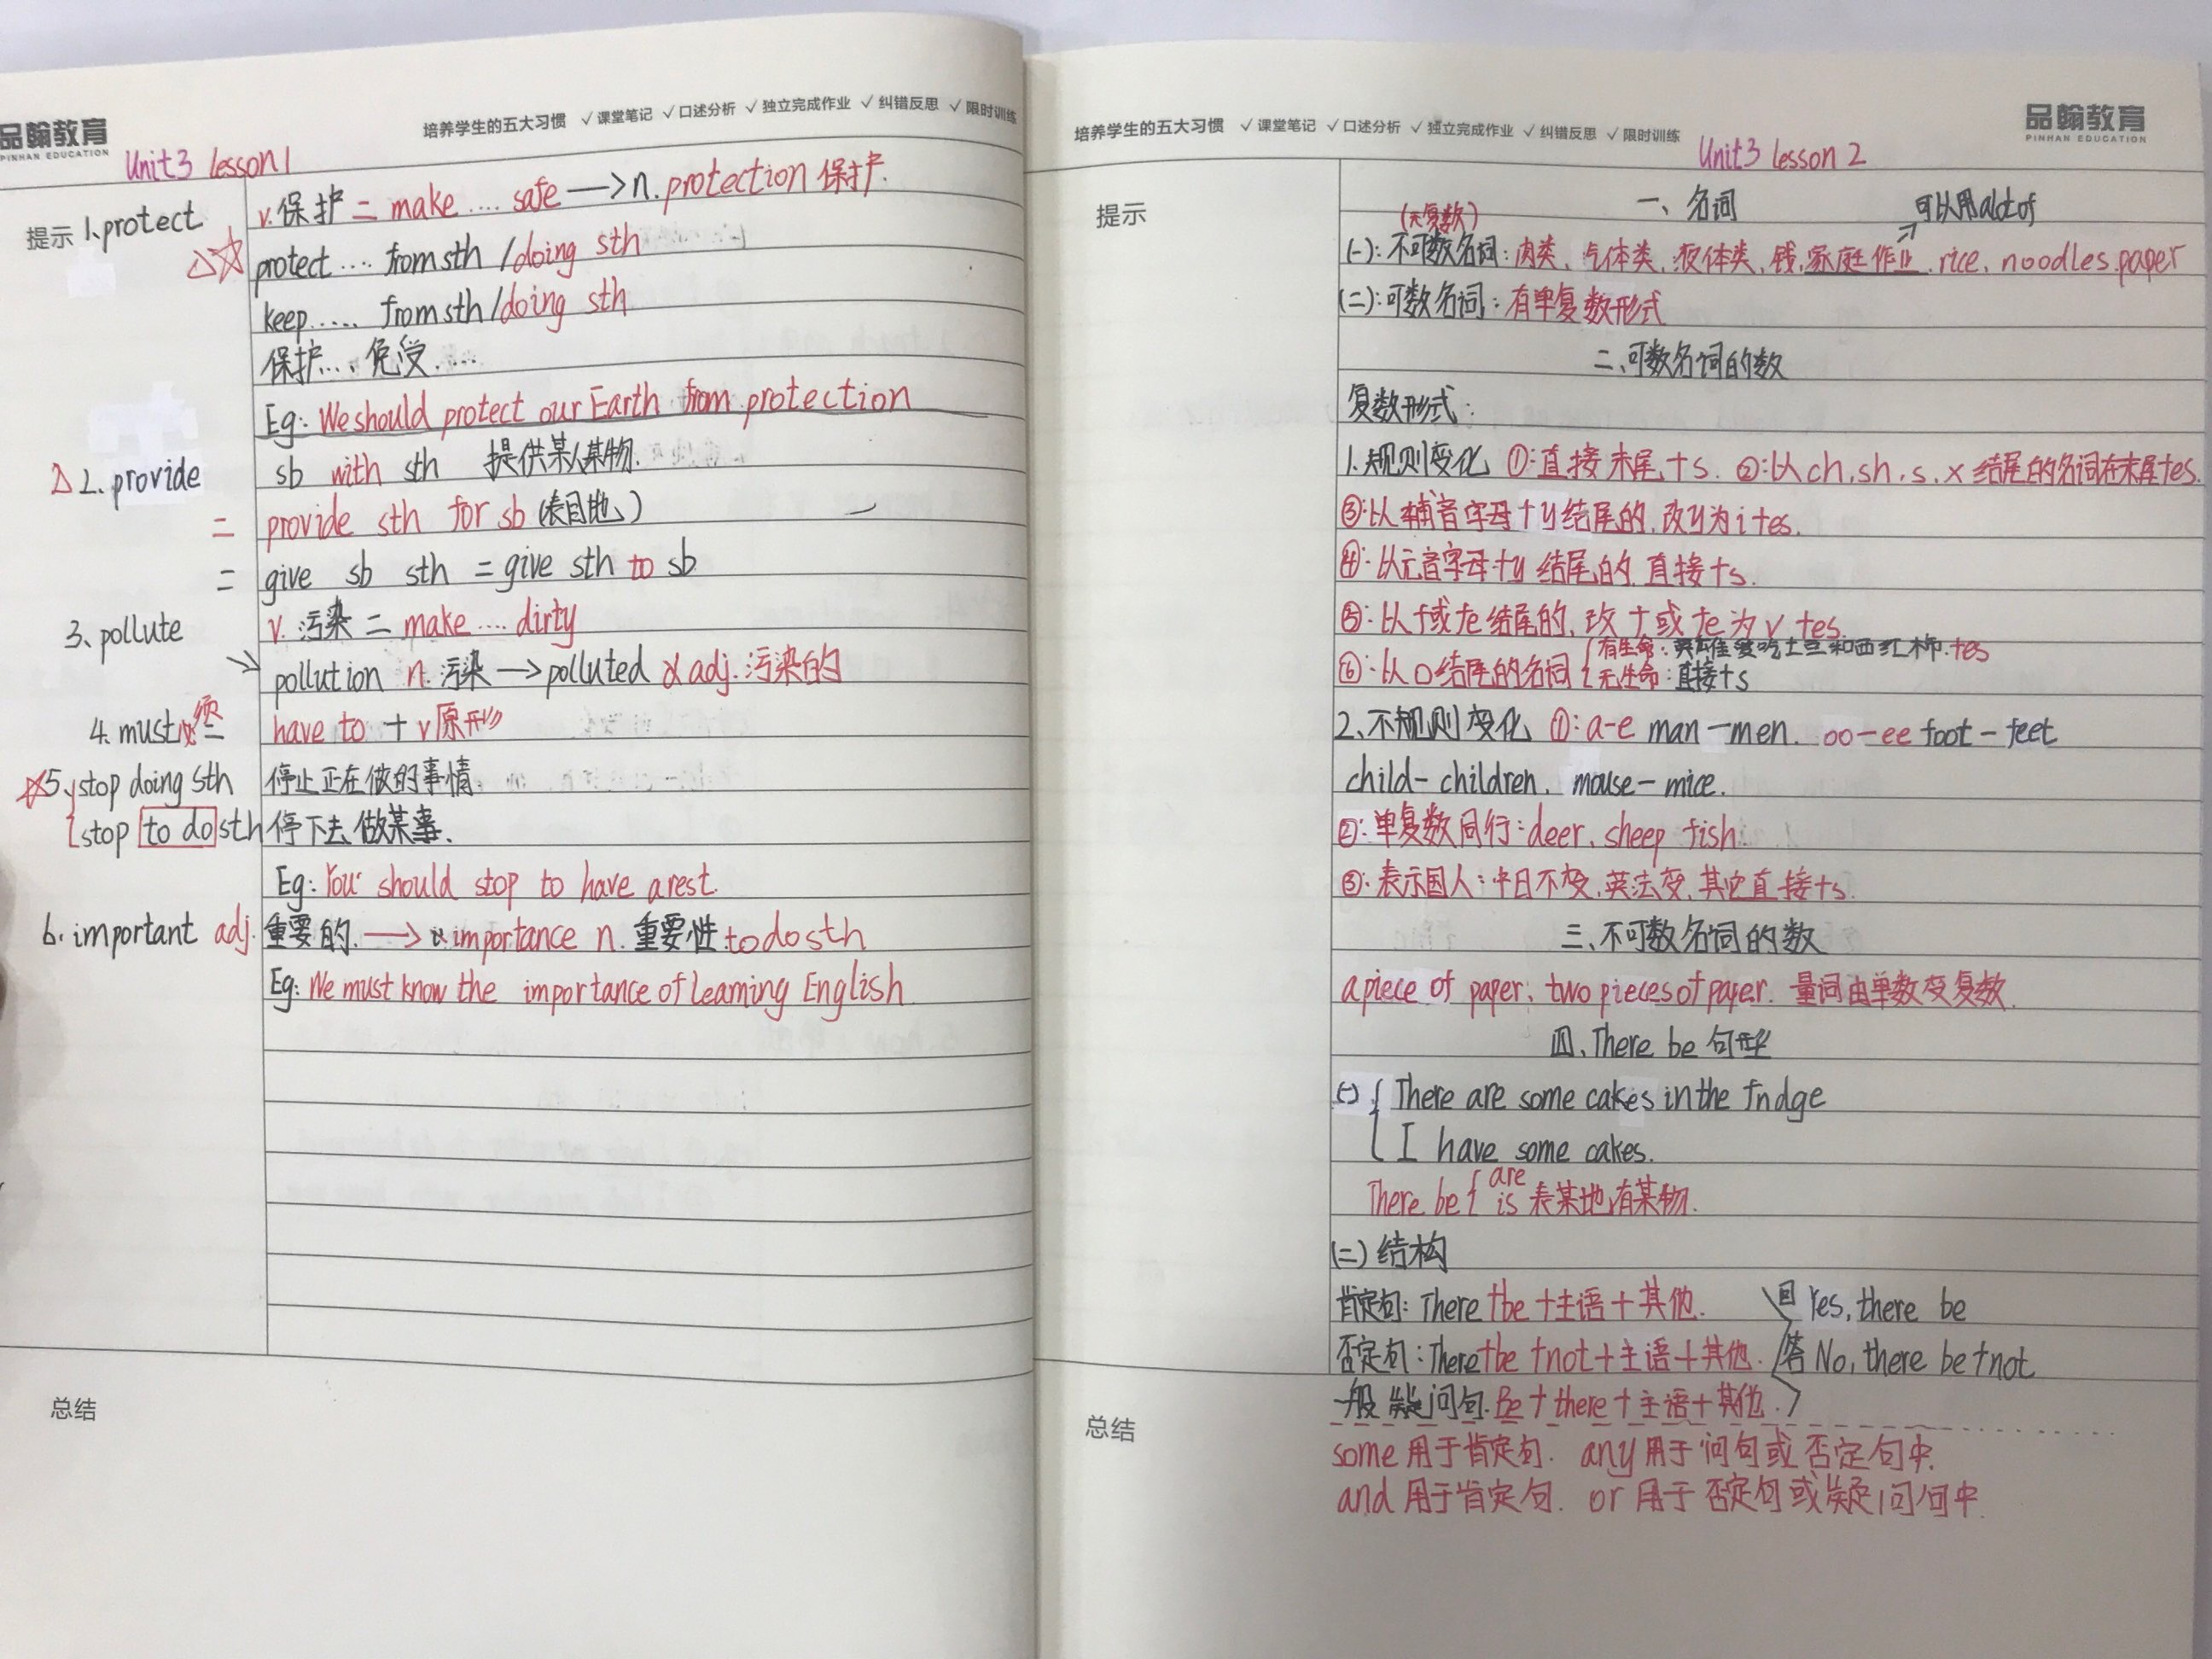 品翰教育
PINHAN EDUCATION
培养学生的五大习惯 ✓课堂笔记 ✓口述分析 ✓独立完成作业 ✓纠错反思 ✓限时训练
Unit3 lesson1
提示 1.protect v.保护 = make .... safe → n. protection 保护.
△☆ protect .... from sth / doing sth
keep ..... from sth / doing sth
保护...、免受....
Eg: We should protect our Earth from protection
△ 2. provide sb with sth 提供某人某物.
= provide sth for sb (表目地)
= give sb sth = give sth to sb
3、pollute v. 污染 = make .... dirty
→ pollution n. 污染 → polluted adj. 污染的
4. must必须 = have to + v原形
☆5、stop doing sth 停止正在做的事情.
stop to do sth 停下去做某事.
Eg: You should stop to have a rest.
6. important adj. 重要的. → importance n. 重要性 to do sth
Eg: We must know the importance of learning English
总结
培养学生的五大习惯 ✓课堂笔记 ✓口述分析 ✓独立完成作业 ✓纠错反思 ✓限时训练
品翰教育
PINHAN EDUCATION
Unit3 lesson 2
提示
一、名词 可以用alot of
(无复数)
(一): 不可数名词: 肉类、气体类、液体类、钱、家庭作业. rice、noodles.paper
(二): 可数名词: 有单复数形式
二、可数名词的数
复数形式:
1.规则变化 ①:直接末尾+s. ②:以ch,sh,s,x结尾的名词在末尾+es.
③:以辅音字母+y结尾的,改y为i+es.
④:以元音字母+y结尾的,直接+s.
⑤:以f或fe结尾的,改f或fe为v+es.
⑥:以o结尾的名词 { 有生命:英雄爱吃土豆和西红柿.+es
无生命:直接+s
2、不规则变化 ①: a-e man-men. oo-ee foot-feet
child-children. mouse-mice.
②: 单复数同行: deer. sheep fish.
③: 表示国人: 中日不变,英法变,其它直接+s.
三、不可数名词的数
a piece of paper; two pieces of paper. 量词由单数变复数.
四、There be 句型
(一) { There are some cakes in the fridge
I have some cakes.
There be { are
is 表某地有某物.
(二) 结构
肯定句: There +be +主语+其他. 回 Yes, there be
否定句: There+be +not+主语+其他. 答 No, there be+not
一般疑问句. Be + there+主语+其他.
总结
some 用于肯定句. any 用于问句或否定句中.
and 用于肯定句. or 用于否定句或疑问句中.